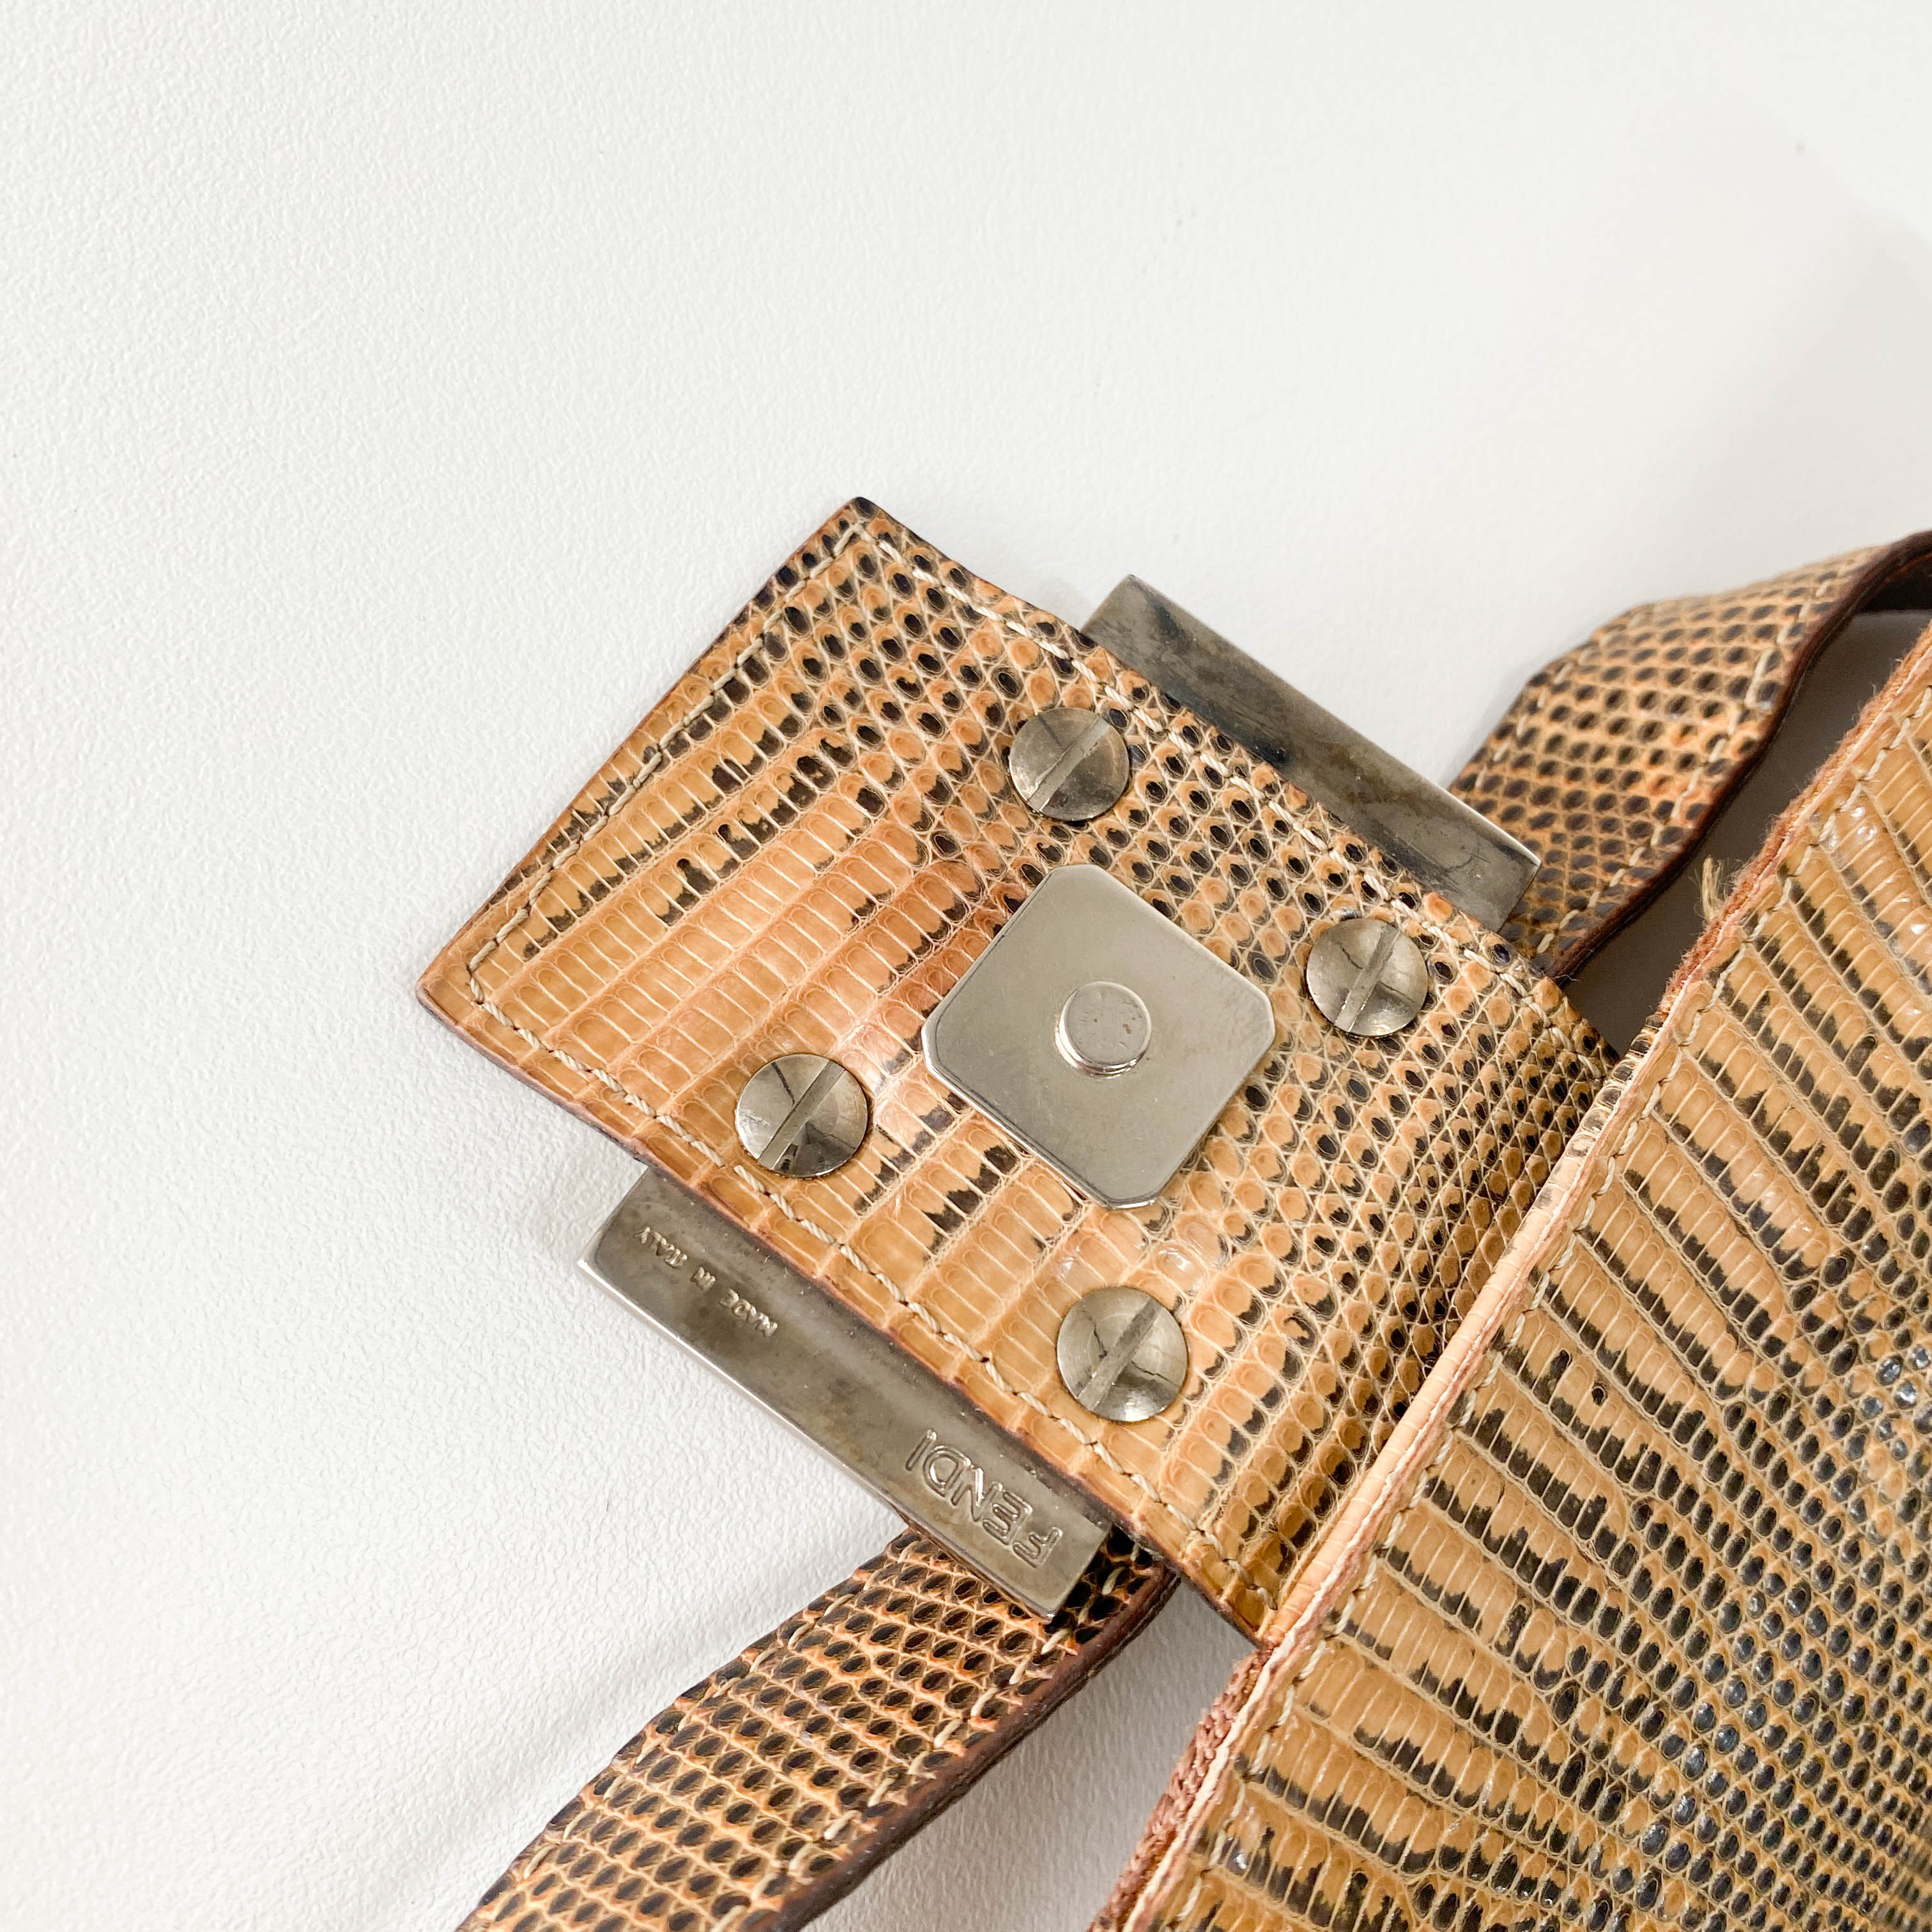 FENDI
MADE IN ITALY